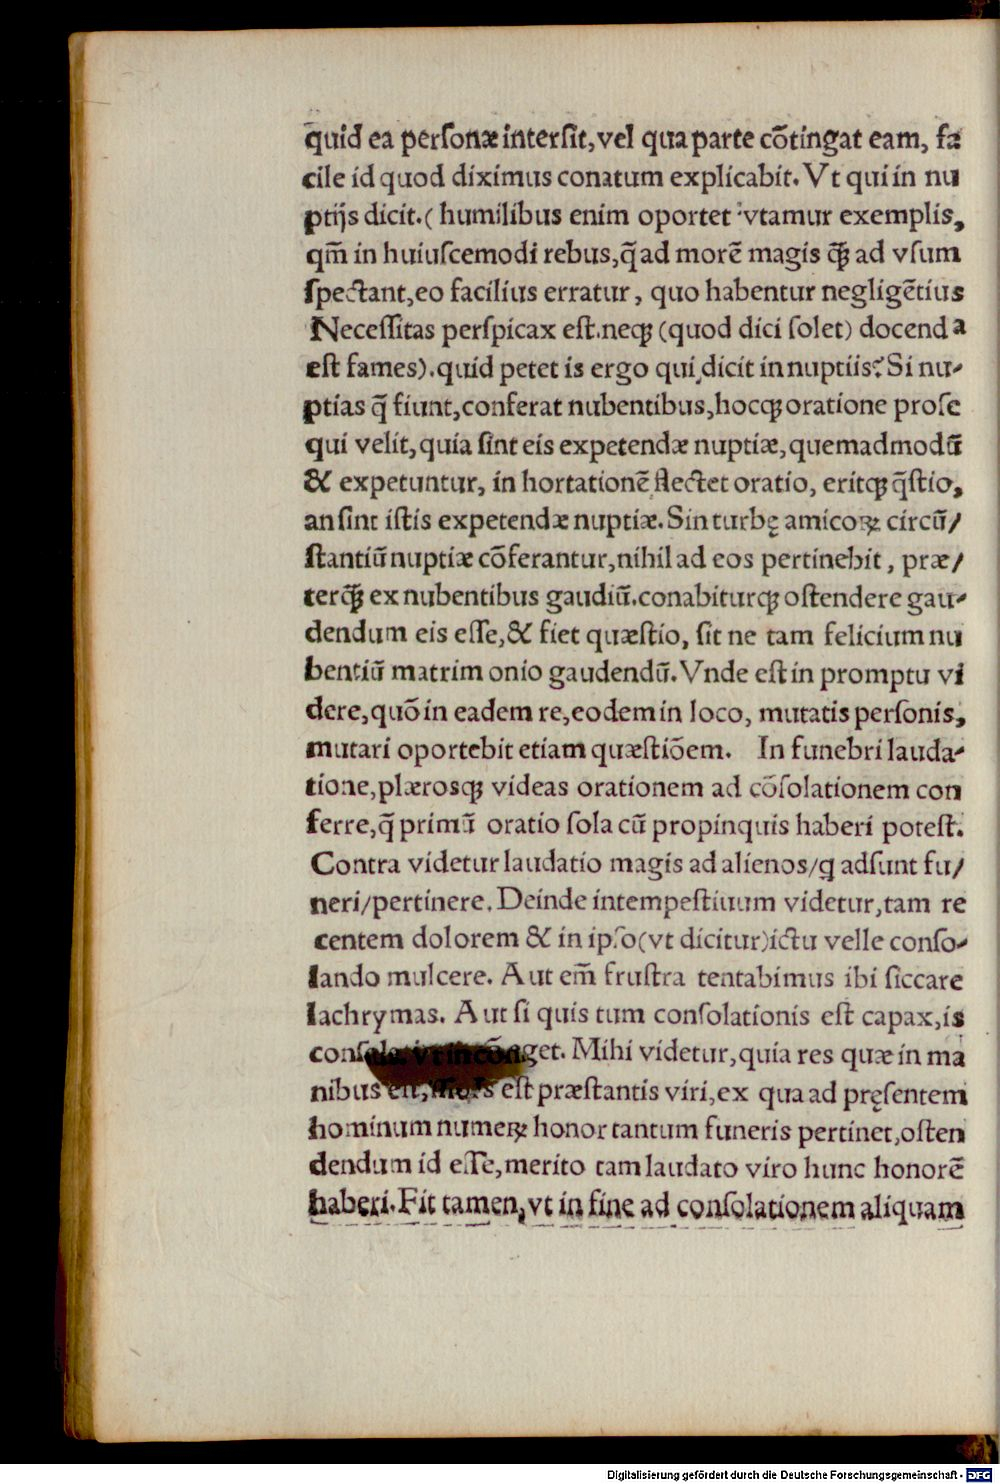 quid ea personæ intersit, vel qua parte cõtingat eam, fa
cile id quod diximus conatum explicabit. Vt qui in nu
ptijs dicit. (humilibus enim oportet vtamur exemplis,
qm̃ in huiuscemodi rebus, q̃ ad morẽ magis q̃ꝫ ad vsum
spectant, eo facilius erratur, quo habentur negligẽtius
Necessitas perspicax est. neqꝫ (quod dici solet) docenda
est fames). quid petet is ergo qui dicit in nuptiis? Si nu-
ptias q̃ fiunt, conferat nubentibus, hocqꝫ oratione prose
qui velit, quia sint eis expetendæ nuptiæ, quemadmodũ
& expetuntur, in hortationẽ flectet oratio, eritqꝫ q̃stio,
an sint istis expetendæ nuptiæ. Sin turbę amicoꝝ circũ/
stantiũ nuptiæ cõferantur, nihil ad eos pertinebit, præ/
terq̃ꝫ ex nubentibus gaudiũ. conabiturqꝫ ostendere gau-
dendum eis esse, & fiet quæstio, sit ne tam felicium nu
bentiũ matrimonio gaudendũ. Vnde est in promptu vi
dere, quõ in eadem re, eodem in loco, mutatis personis,
mutari oportebit etiam quæstiõem. In funebri lauda-
tione, plærosqꝫ videas orationem ad cõsolationem con
ferre, q̃ primũ oratio sola cũ propinquis haberi potest.
Contra videtur laudatio magis ad alienos/ꝗ adsunt fu/
neri/pertinere. Deinde intempestiuum videtur, tam re
centem dolorem & in ipso (vt dicitur) ictu velle conso-
lando mulcere. Aut em̃ frustra tentabimus ibi siccare
lachrymas. Aut si quis tum consolationis est capax, is
get. Mihi videtur, quia res quæ in ma
nibus est præstantis viri, ex qua ad pręsentem
hominum numeꝝ honor tantum funeris pertinet, osten
dendum id esse, merito tam laudato viro hunc honorẽ
haberi. Fit tamen, vt in fine ad consolationem aliquam
Digitalisierung gefördert durch die Deutsche Forschungsgemeinschaft - DFG